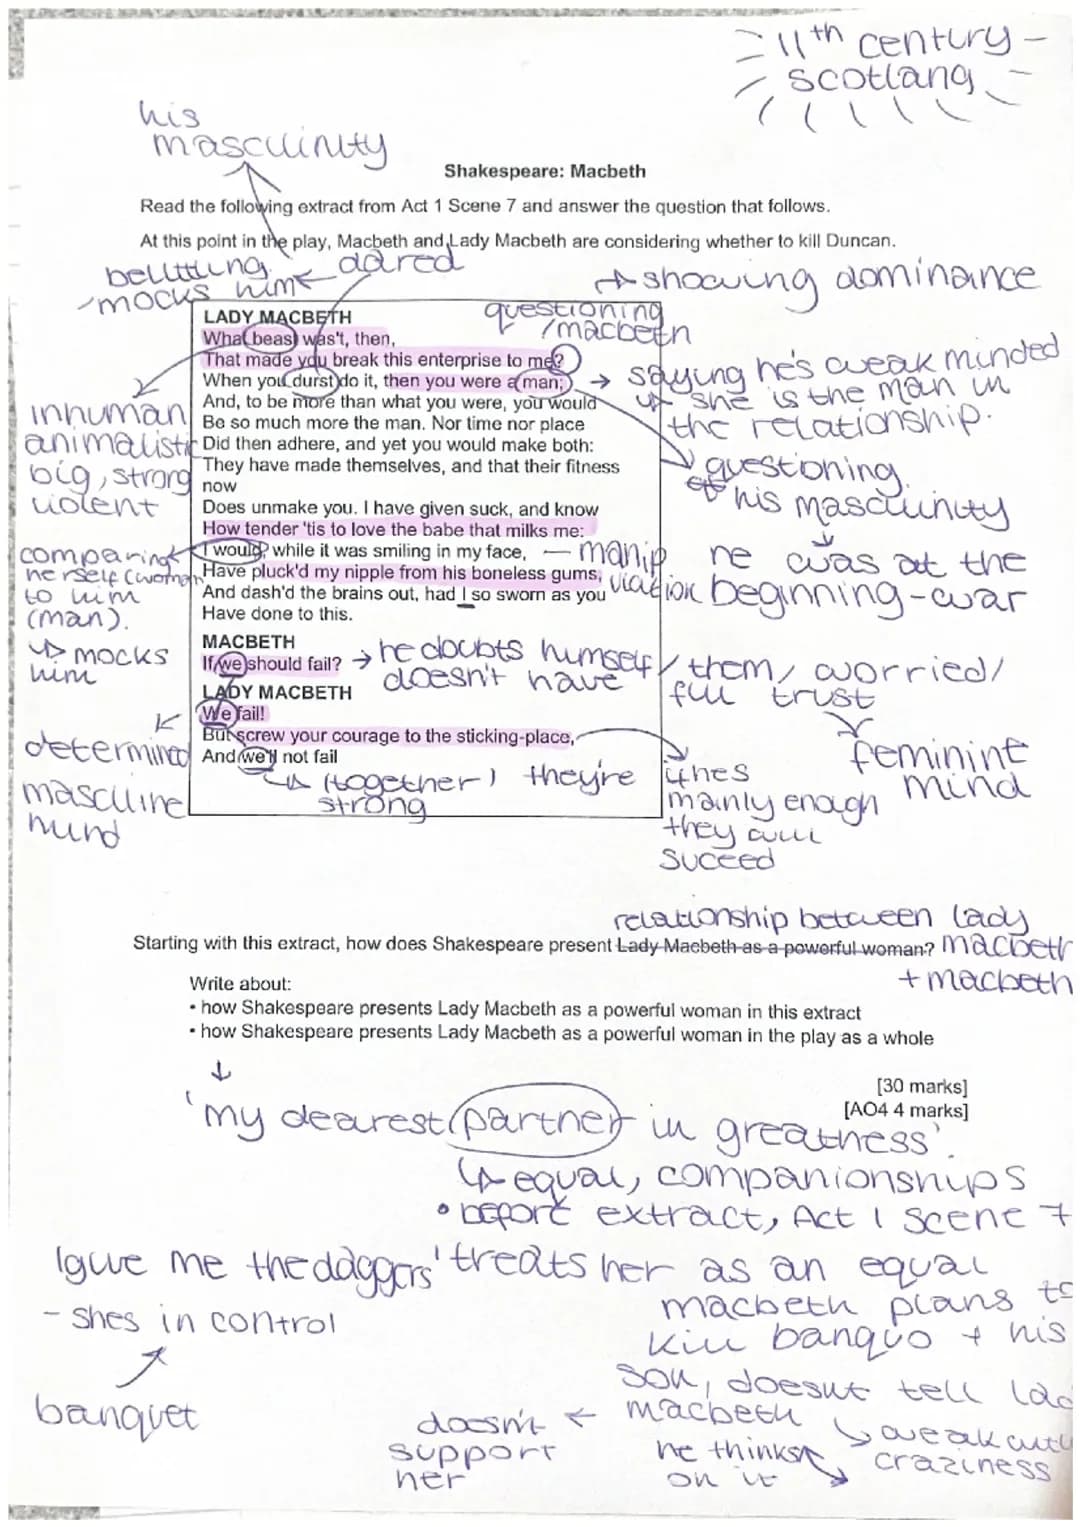 11th century
scotland
his
masculinity
Shakespeare: Macbeth
Read the following extract from Act 1 Scene 7 and answer the question that follows.
At this point in the play, Macbeth and Lady Macbeth are considering whether to kill Duncan.
belittling
mocks him
dared
showing dominance
questioning
/macbeth
LADY MACBETH
What beast was't, then,
That made you break this enterprise to me?
When you durst do it, then you were a man;
And, to be more than what you were, you would
Be so much more the man. Nor time nor place
Did then adhere, and yet you would make both:
They have made themselves, and that their fitness
now
Does unmake you. I have given suck, and know
How tender 'tis to love the babe that milks me:
I would, while it was smiling in my face,
Have pluck'd my nipple from his boneless gums,
And dash'd the brains out, had I so sworn as you
Have done to this.
MACBETH
If we should fail?
LADY MACBETH
We fail!
But screw your courage to the sticking-place,
And we'll not fail
saying he's weak minded
she is the man in
the relationship.
questioning
his masculinity
he was at the
beginning-war
inhuman
animalistic
big, strong
violent
comparing
herself (woman
to him
(man).
mocks
him
manip
ulation
he doubts himself/them, worried/
doesn't have full trust
feminine
mind
determined
masculine
mind
(together) they're
strong
if hes
mainly enough
they will
suceed
relationship between lady
Starting with this extract, how does Shakespeare present Lady Macbeth as a powerful woman? macbeth
+ macbeth
Write about:
• how Shakespeare presents Lady Macbeth as a powerful woman in this extract
• how Shakespeare presents Lady Macbeth as a powerful woman in the play as a whole
[30 marks]
[AO4 4 marks]
'my dearest partner in greatness'.
equal, companionships
• before extract, Act 1 Scene 7
'give me the daggers' treats her as an equal
- shes in control
banquet
macbeth plans to
kill banquo + his
son, doesnt tell lad
macbeth
doesn't
support
her
he thinks
on it
weak
craziness